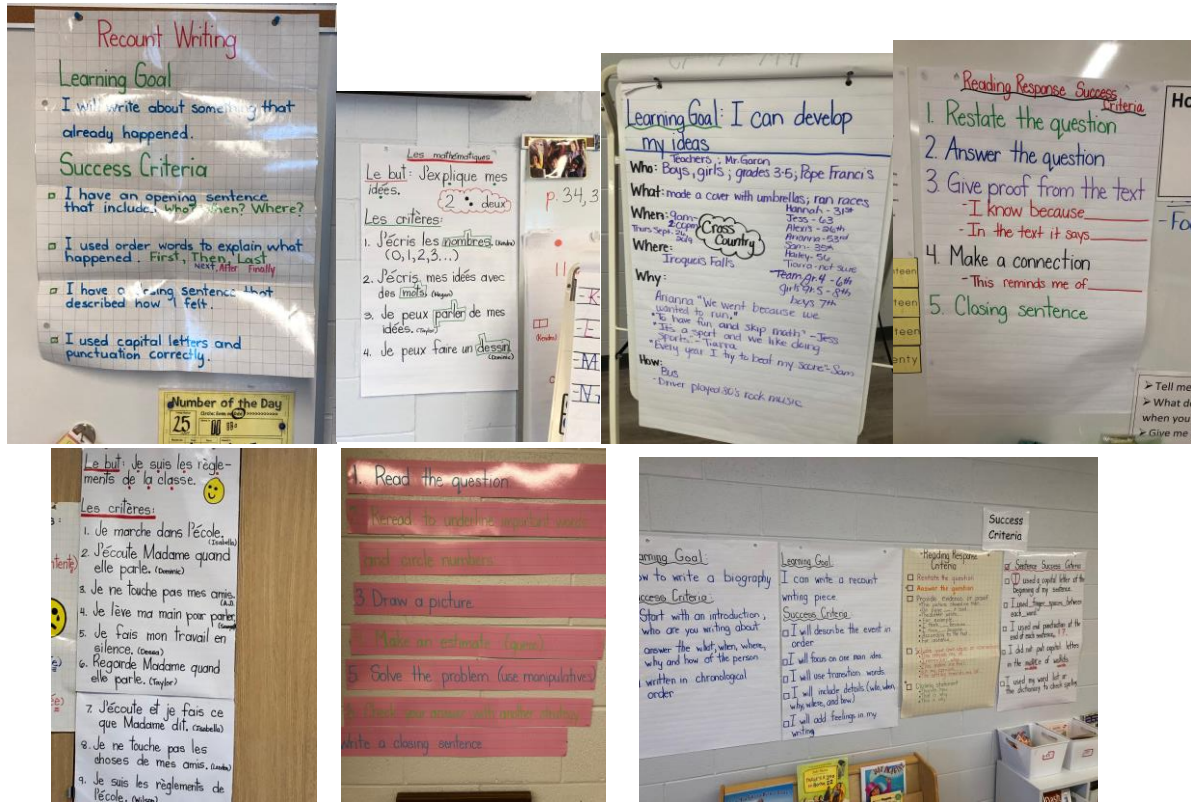 Recount Writing
Learning Goal
I will write about something that
already happened.
Success Criteria
I have an opening sentence
that includes Who? When? Where?
I used order words to explain what
happened. First, Then, Last
Next, After Finally
I have a sentence that
described how I felt.
I used capital letters and
punctuation correctly.
Number of the Day
25
Les mathématiques
Le but: J'explique mes
idées.
2 deux
Les critères:
1. J'écris les nombres.
(0,1,2,3...)
2. J'écris mes idées avec
des mots. (Megan)
3. Je peux parler de mes
idées. (Taylor)
4. Je peux faire un dessin.
(Dominic)
p. 34, 3
(Kendra)
Learning Goal: I can develop
my ideas
Teachers; Mr. Goran
Who: Boys, girls; grades 3-5; Pope Francis
What: made a cover with umbrellas; ran races
When: 9am-
2:00pm
Thurs Sept. 26,
2019
Cross
Country
Hannah - 31st
Jess - 63
Alexis - 26th
Arianna - 53rd
Sam - 35th
Hailey - 56
Tiarra - not sure
Team Gr. 4 - 6th
girls Gr. 5 - 8th
boys 7th
Where:
Iroquois Falls
Why:
Arianna "We went because we
wanted to run."
"To have fun and skip math" - Jess
"Its a sport and we like doing
sports." - Tiarra
"Every year I try to beat my score" - Sam
How:
Bus
- Driver played 80's rock music
Reading Response Success
Criteria
1. Restate the question
2. Answer the question
3. Give proof from the text
- I know because
- In the text it says
4. Make a connection
- This reminds me of
5. Closing sentence
Ho
- Fo
teen
teen
teen
enty
Tell me
What do
when you
Give me
Le but: Je suis les règle-
ments de la classe.
Les critères:
1. Je marche dans l'école.
(Isabella)
2. J'écoute Madame quand
elle parle. (Dominic)
3. Je ne touche pas mes amis.
4. Je lève ma main pour parler.
5. Je fais mon travail en
silence.
6. Regarde Madame quand
elle parle. (Taylor)
7. J'écoute et je fais ce
que Madame dit. (Isabella)
8. Je ne touche pas les
choses de mes amis.
9. Je suis les règlements de
l'école.
1. Read the question
2. Reread to underline important words
and circle numbers
3. Draw a picture
4. Make an estimate (guess)
5. Solve the problem (use manipulatives)
6. Check your answer with another strategy
Write a closing sentence
Success
Criteria
arning Goal:
ow to write a biography
uccess Criteria:
Start with an introduction,
who are you writing about
answer the what, when, where,
why and how of the person
written in chronological
order
Learning Goal:
I can write a recount
writing piece.
Success Criteria
I will describe the event in
order
I will focus on one main idea.
I will use transition words
I will include details (who, when,
why, where, and how)
I will add feelings in my
writing
Reading Response
Criteria
Restate the question
Answer the question
Provide evidence or proof
Closing statement
Sentence Success Criteria
I used a capital letter at the
beginning of my sentence.
I used finger spaces between
each word.
I used end punctuation at the
end of each sentence. !?.
I did not put capital letters
in the middle of words.
I used my word list or
the dictionary to check spelling.